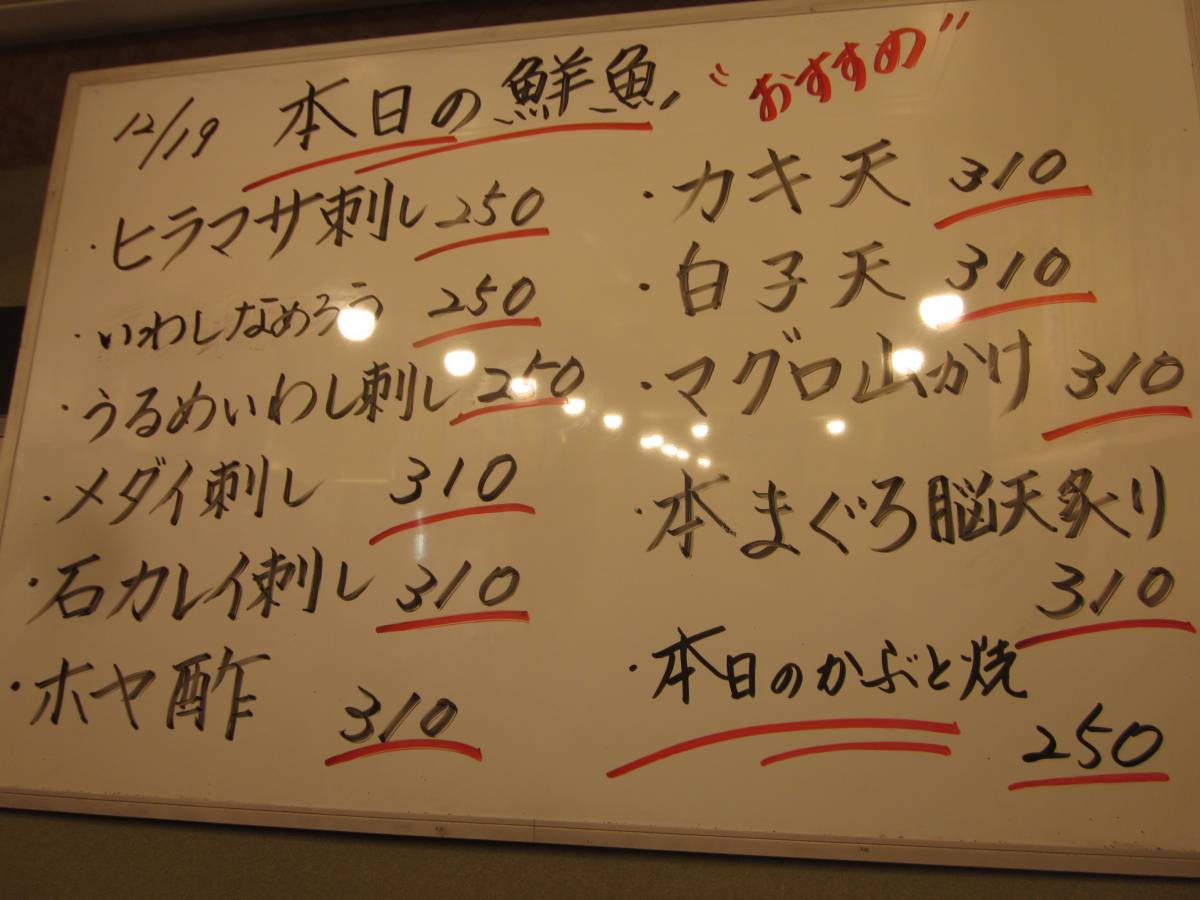 12/19 本日の鮮魚 "おすすめ"
・ヒラマサ刺し 250
・いわしなめろう 250
・うるめいわし刺し 250
・メダイ刺し 310
・石カレイ刺し 310
・ホヤ酢 310
・カキ天 310
・白子天 310
・マグロ山かけ 310
・本まぐろ脳天炙り
310
・本日のかぶと焼
250